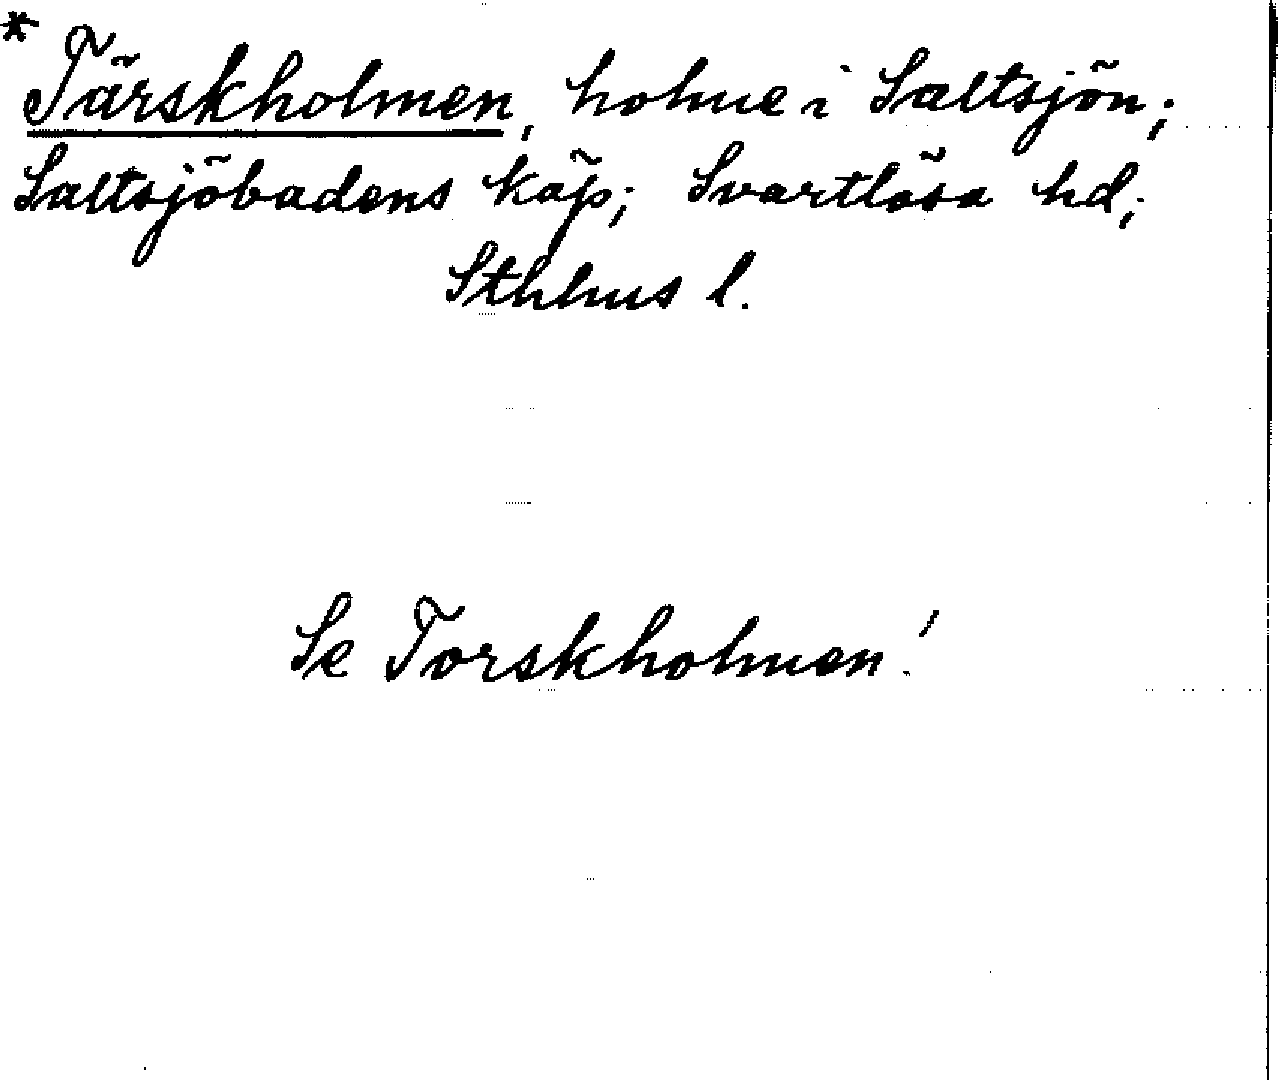 *Tärskholmen, holme i Saltsjön;
Saltsjöbadens köp; Svartlösa hd;
Sthlms l.
Se Torskholmen!